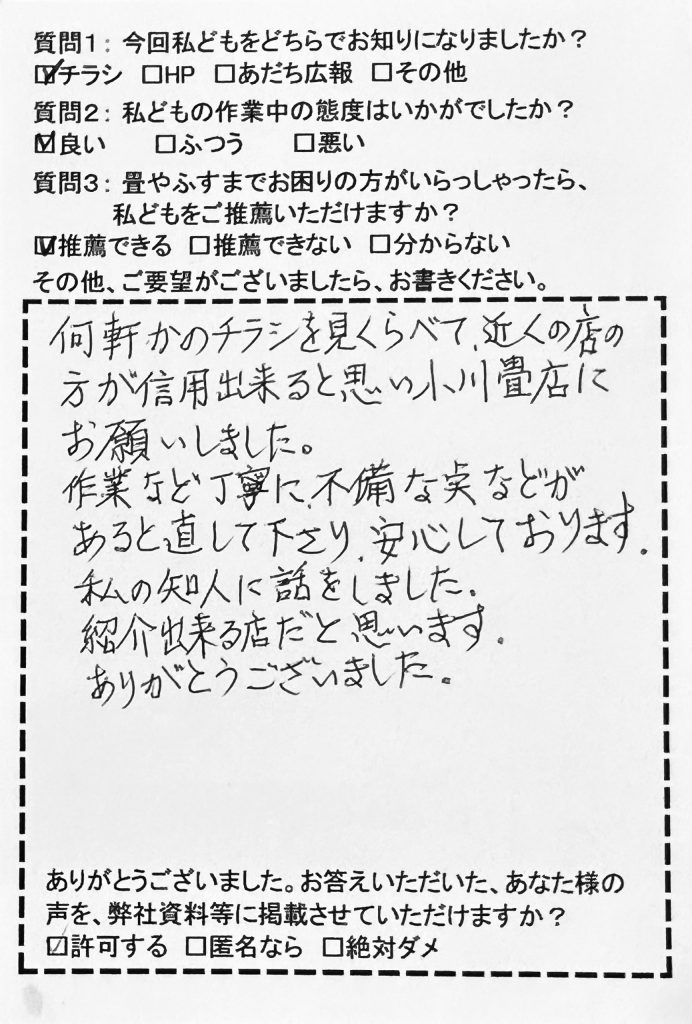 質問1: 今回私どもをどちらでお知りになりましたか？
☑チラシ □HP □あだち広報 □その他
質問2: 私どもの作業中の態度はいかがでしたか？
☑良い □ふつう □悪い
質問3: 畳やふすまでお困りの方がいらっしゃったら、
私どもをご推薦いただけますか？
☑推薦できる □推薦できない □分からない
その他、ご要望がございましたら、お書きください。
何軒かのチラシを見くらべて、近くの店の
方が信用出来ると思い小川畳店に
お願いしました。
作業など丁寧に、不備な点などが
あると直して下さり、安心しております。
私の知人に話をしました。
紹介出来る店だと思います。
ありがとうございました。
ありがとうございました。お答えいただいた、あなた様の
声を、弊社資料等に掲載させていただけますか？
☑許可する □匿名なら □絶対ダメ